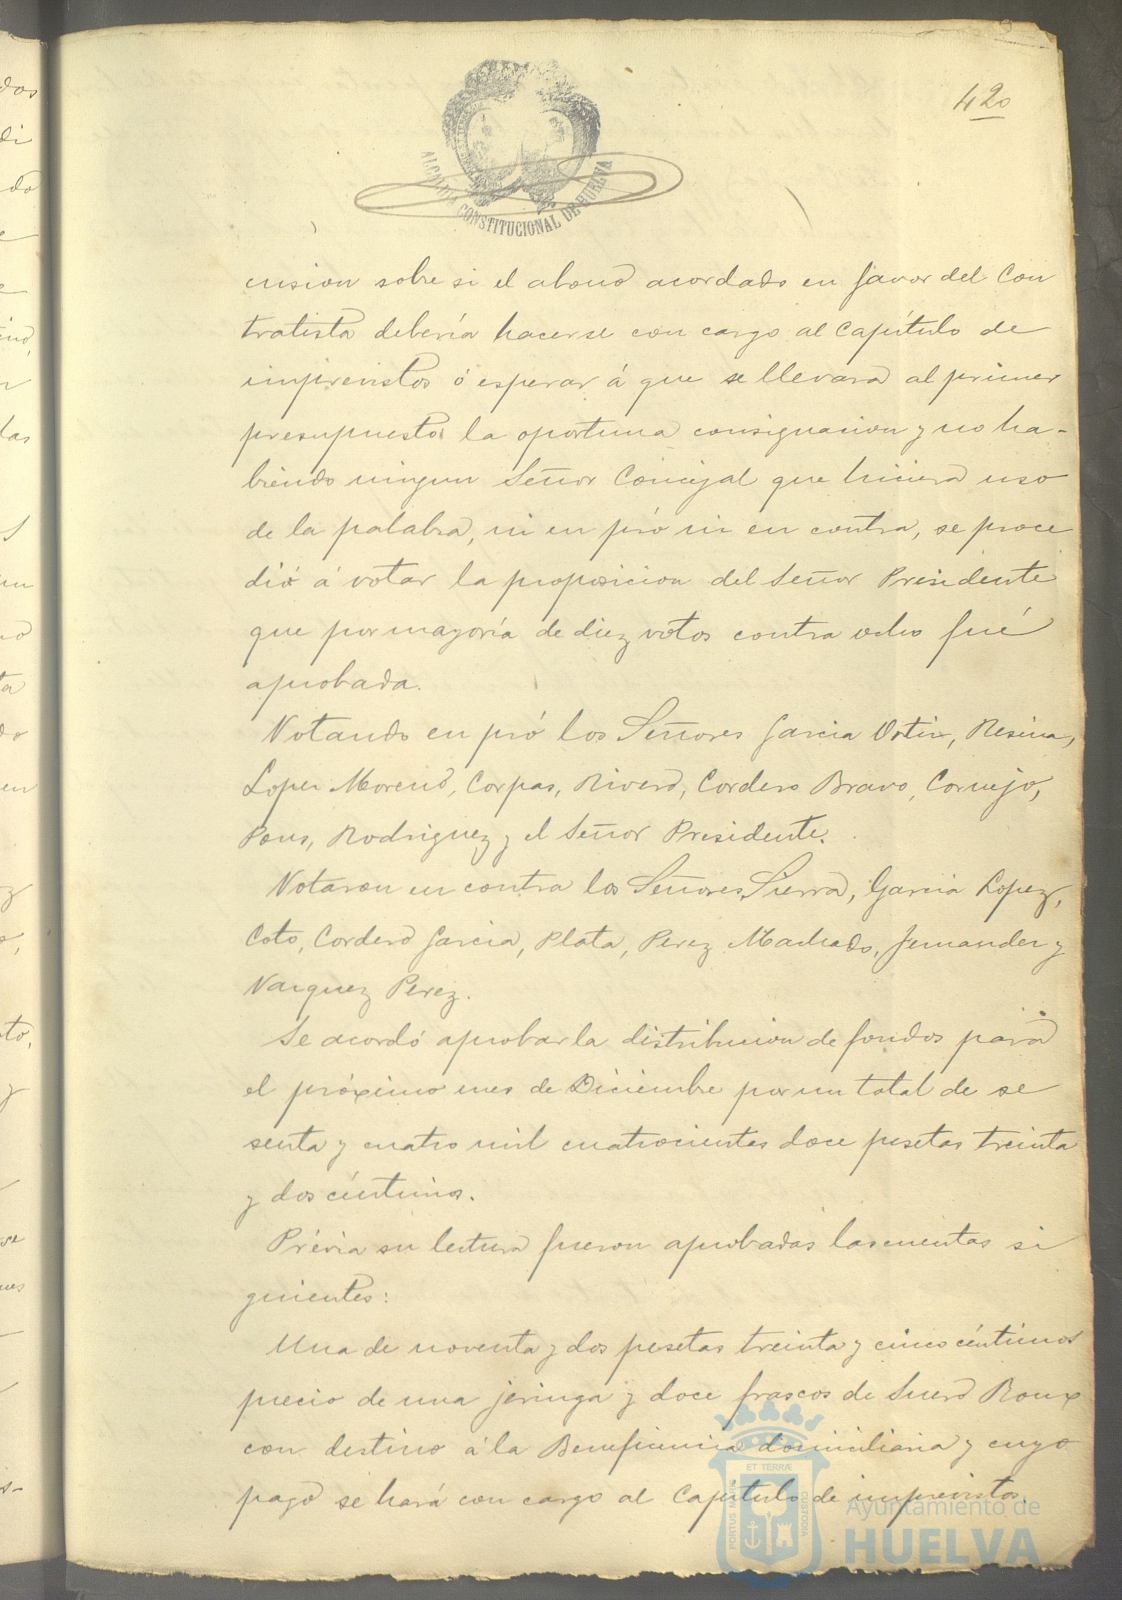 420
ALCALDIA CONSTITUCIONAL DE HUELVA
cusion sobre si el abono acordado en favor del Con
tratista debería hacerse con cargo al Capítulo de
imprevistos ó esperar á que se llevara al primer
presupuesto la oportuna consignacion y no ha-
biendo ningun Señor Concejal que hiciera uso
de la palabra, ni en pró ni en contra, se proce
dió á votar la proposicion del Señor Presidente
que por mayoría de diez votos contra ocho fué
aprobada.
Votando en pró los Señores Garcia Ortiz, Resina,
Lopez Moreno, Corpas, Rivero, Cordero Bravo, Cornejo,
Pons, Rodriguez y el Señor Presidente.
Votaron en contra los Señores Sierra, Garcia Lopez,
Coto, Cordero Garcia, Plata, Perez Machado, Fernandez y
Vazquez Perez.
Se acordó aprobar la distribucion de fondos para
el próximo mes de Diciembre por un total de se
senta y cuatro mil cuatrocientas doce pesetas treinta
y dos céntimos.
Prévia su lectura fueron aprobadas las cuentas si
guientes:
Una de noventa y dos pesetas treinta y cinco céntimos
precio de una jeringa y doce frascos de Suero Roux
con destino á la Beneficencia domiciliaria y cuyo
pago se hará con cargo al Capitulo de imprevistos.
ET TERRÆ
PORTUS MARIS
CUSTODIA
Ayuntamiento de
HUELVA